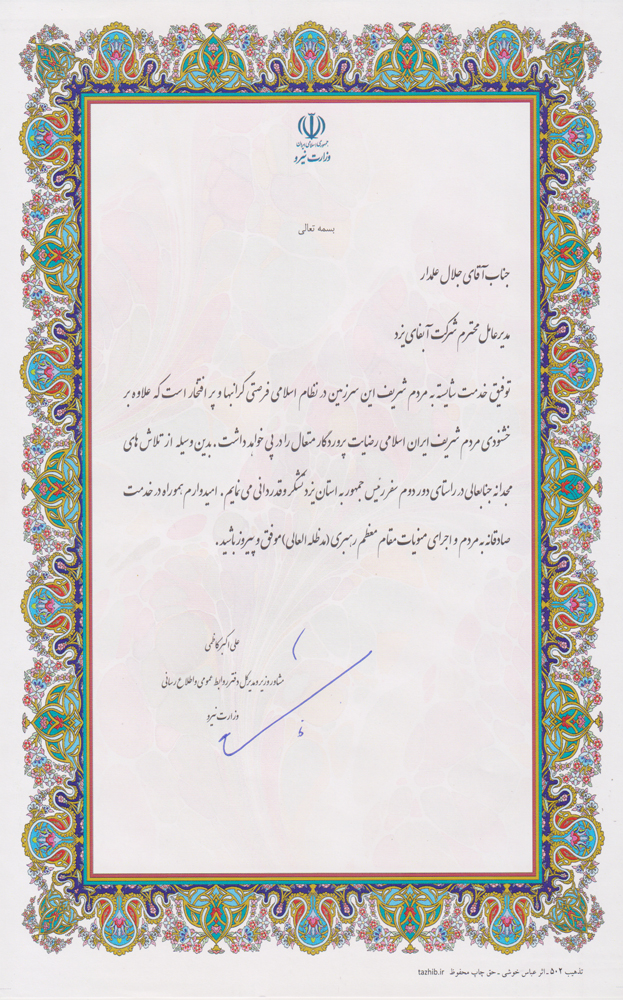 جمهوری اسلامی ایران
وزارت نیرو
بسمه تعالی
جناب آقای جلال علمدار
مدیرعامل محترم شرکت آبفای یزد
توفیق خدمت شایسته به مردم شریف این سرزمین در نظام اسلامی فرصتی گرانبها و پر افتخار است که علاوه بر
خشنودی مردم شریف ایران اسلامی رضایت پروردگار متعال را در پی خواهد داشت. بدین وسیله از تلاش های
مجدانه جنابعالی در راستای دور دوم سفر رئیس جمهور به استان یزد تشکر و قدردانی می نمایم. امیدوارم همواره در خدمت
صادقانه به مردم و اجرای منویات مقام معظم رهبری (مدظله العالی) موفق و پیروز باشید.
علی اکبر کاظمی
مشاور وزیر و مدیرکل دفتر روابط عمومی و اطلاع رسانی
وزارت نیرو
تذهیب ۵۰۲ ـ اثر عباس خوشی ـ حق چاپ محفوظ tazhib.ir